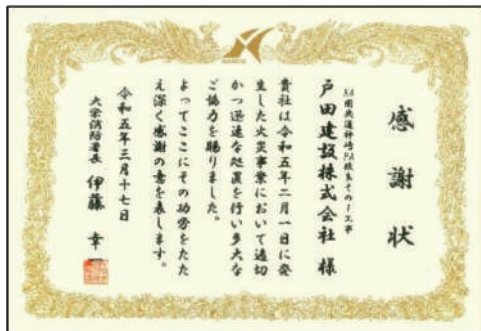 感謝状
R4圏央道神崎PA改良その1工事
戸田建設株式会社 様
貴社は令和五年二月一日に発
生した火災事案において適切
かつ迅速な処置を行い多大な
ご協力を賜りました。
よってここにその功労をたた
え深く感謝の意を表します。
令和五年三月十七日
大栄消防署長 伊藤 幸一